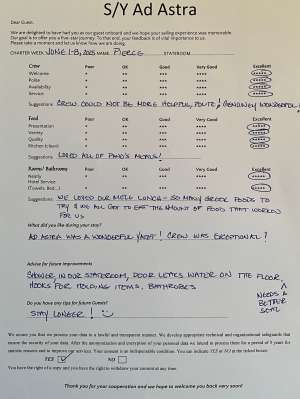 S/Y Ad Astra
Dear Guest,
We are delighted to have had you as our guest onboard and we hope your sailing experience was memorable.
Our goal is to offer you a five-star journey. To that end, your feedback is of vital importance to us.
Please take a moment and let us know how we are doing.
CHARTER WEEK JUNE 1-8, 2025 NAME PIERCE STATEROOM
Crew Poor OK Good Very Good Excellent
Welcome • •• ••• •••• •••••
Polite • •• ••• •••• •••••
Availability • •• ••• •••• •••••
Service • •• ••• •••• •••••
Suggestions: CREW COULD NOT BE MORE HELPFUL, POLITE & GENUINELY WONDERFUL!
Food Poor OK Good Very Good Excellent
Presentation • •• ••• •••• •••••
Variety • •• ••• •••• •••••
Quality • •• ••• •••• •••••
Kitchen (clean) • •• ••• •••• •••••
Suggestions: LOVED ALL OF MENUS!
Rooms/ Bathrooms Poor OK Good Very Good Excellent
Neatly • •• ••• •••• •••••
Hotel Service • •• ••• •••• •••••
(Towels, Bed...) • •• ••• •••• •••••
Suggestions: WE LOVED OUR LUNCH - SO MANY GREEK FOODS TO
TRY & WE ALL GOT TO EAT THE AMOUNT OF FOOD THAT WORKED
FOR US
What did you like during your stay?
AD ASTRA WAS A WONDERFUL YACHT! CREW WAS EXCEPTIONAL!
Advice for future improvements
SHOWER IN OUR STATEROOM, DOOR LEAKS WATER ON THE FLOOR,
HOOKS FOR HOLDING ITEMS, BATHROBES
NEEDS A
BETTER
SEAL
Do you have any tips for future Guests?
STAY LONGER!
We assure you that we process your data in a lawful and transparent manner. We develop appropriate technical and organizational safeguards that
ensure the security of your data. After the anonymization and encryption of your personal data we intend to process them for a period of 5 years for
reasons and to improve our services. Your consent is an indispensable condition. You can indicate YES or NO in the ticked boxes:
YES NO
You have the right of a copy and you have the right to withdraw your consent at any time.
Thank you for your cooperation and we hope to welcome you back very soon!